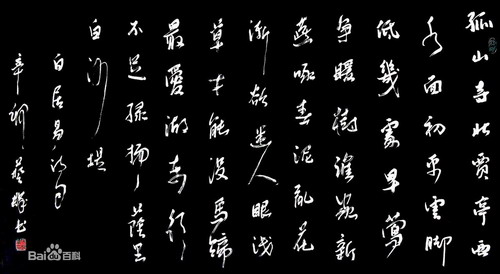 孤山寺北賈亭西
水面初平雲脚
低幾處早鶯
争暖樹誰家新
燕啄春泥亂花
漸欲迷人眼浅
草才能没馬蹄
最愛湖东行
不足绿楊蔭里
白沙堤
白居易诗句
Bai百科